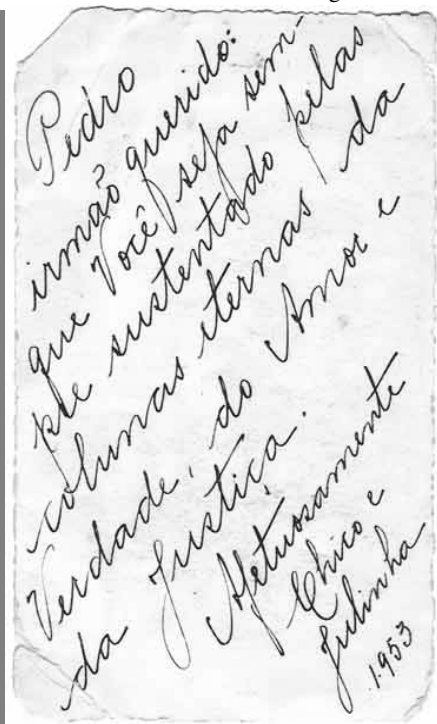 Pedro
irmão querido:
que Você seja sem-
pre sustentado pelas
colunas eternas da
Verdade, do Amor e
da Justiça.
Afetuosamente
Chico e
Julinha
1953